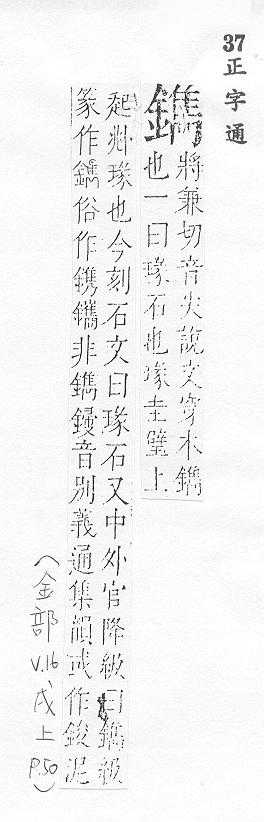 37 正字通
鐫
將兼切音尖說文穿木鐫
也一曰瑑石也瑑圭璧上
起兆瑑也今刻石文曰瑑石又中外官降級曰鐫級
篆作鐫俗作鎸鑴非鐫鋑音別義通集韻或作鋑泥
(金部 V.16 戌上 P.50)